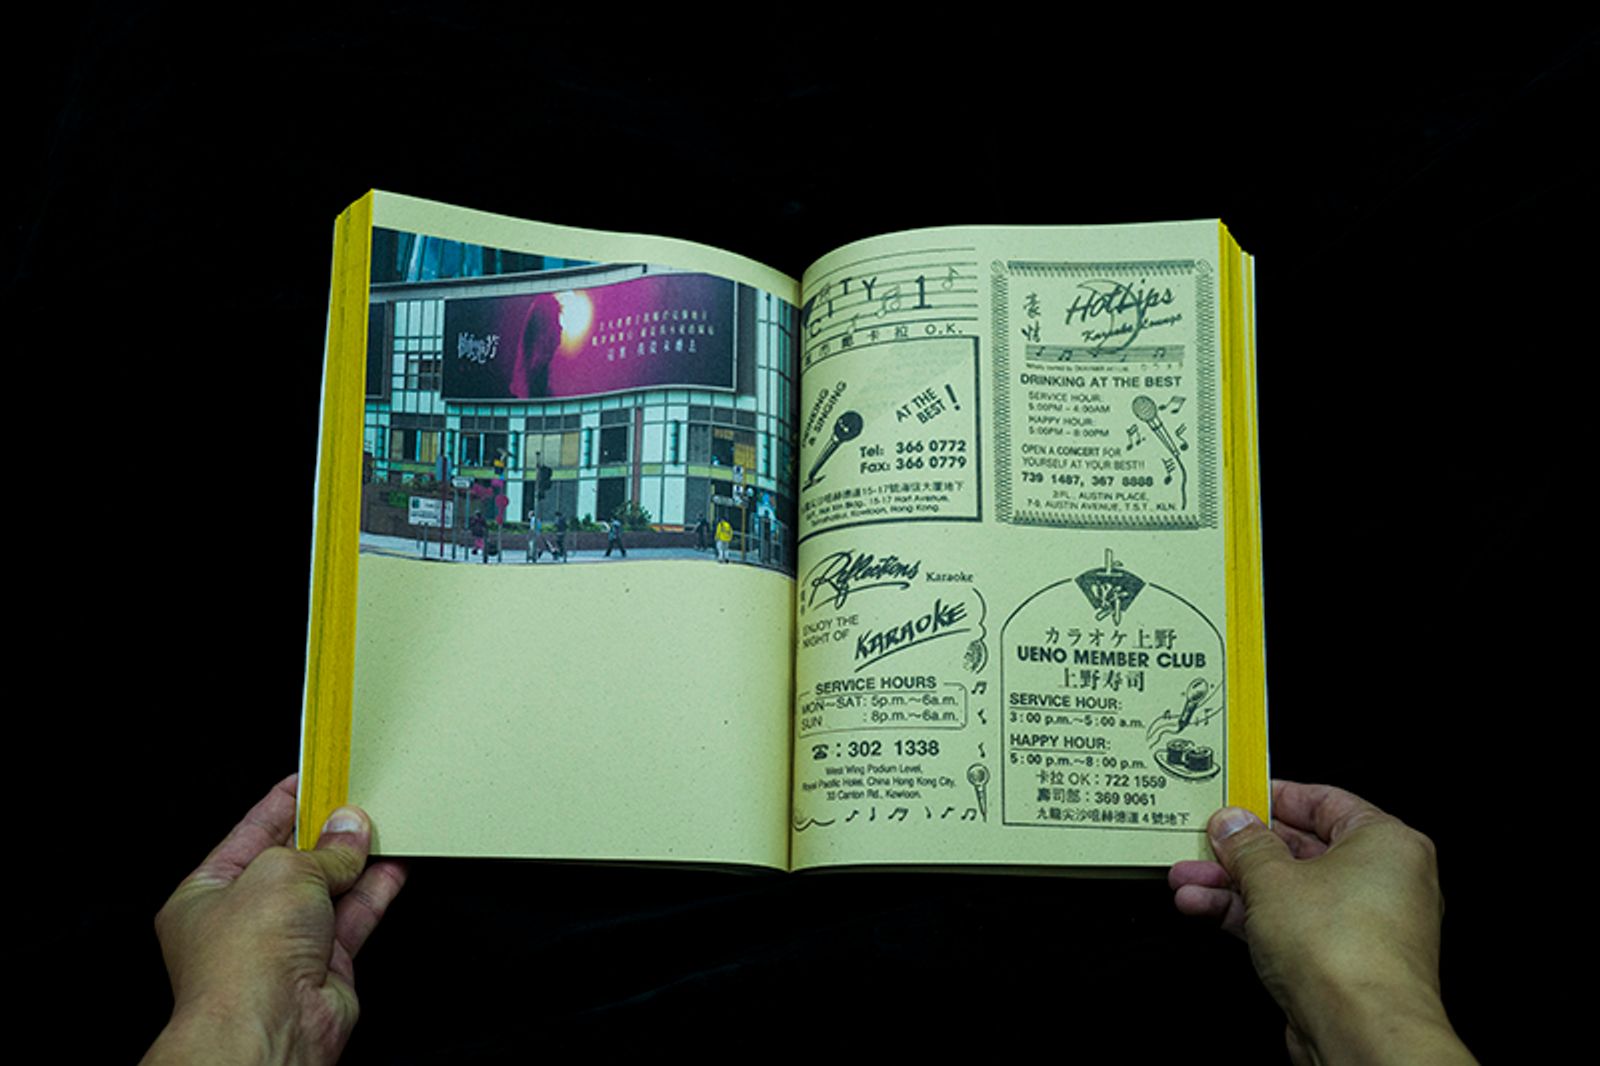 梅艷芳
CITY
CITY
1
卡拉 O.K.
DRINKING
& SINGING
AT THE
BEST!
Tel: 366 0772
Fax: 366 0779
尖沙咀赫德道15-17號海恆大廈地下
15-17 Hart Avenue,
Tsimshatsui, Kowloon, Hong Kong.
豪情
HotLips
Karaoke Lounge
DRINKING AT THE BEST
SERVICE HOUR:
5:00PM – 4:00AM
HAPPY HOUR:
5:00PM – 8:00PM
OPEN A CONCERT FOR
YOURSELF AT YOUR BEST!!
739 1487, 367 8888
2/FL., AUSTIN PLACE,
7-9, AUSTIN AVENUE, T.S.T., KLN.
Reflections Karaoke
ENJOY THE
NIGHT OF
KARAOKE
SERVICE HOURS
MON～SAT: 5p.m.～6a.m.
SUN : 8p.m.～6a.m.
☎ : 302 1338
West Wing Podium Level,
Royal Pacific Hotel, China Hong Kong City,
33 Canton Rd., Kowloon.
上野
カラオケ上野
UENO MEMBER CLUB
上野寿司
SERVICE HOUR:
3:00 p.m.～5:00 a.m.
HAPPY HOUR:
5:00 p.m.～8:00 p.m.
卡拉OK：722 1559
壽司部：369 9061
九龍尖沙咀赫德道4號地下